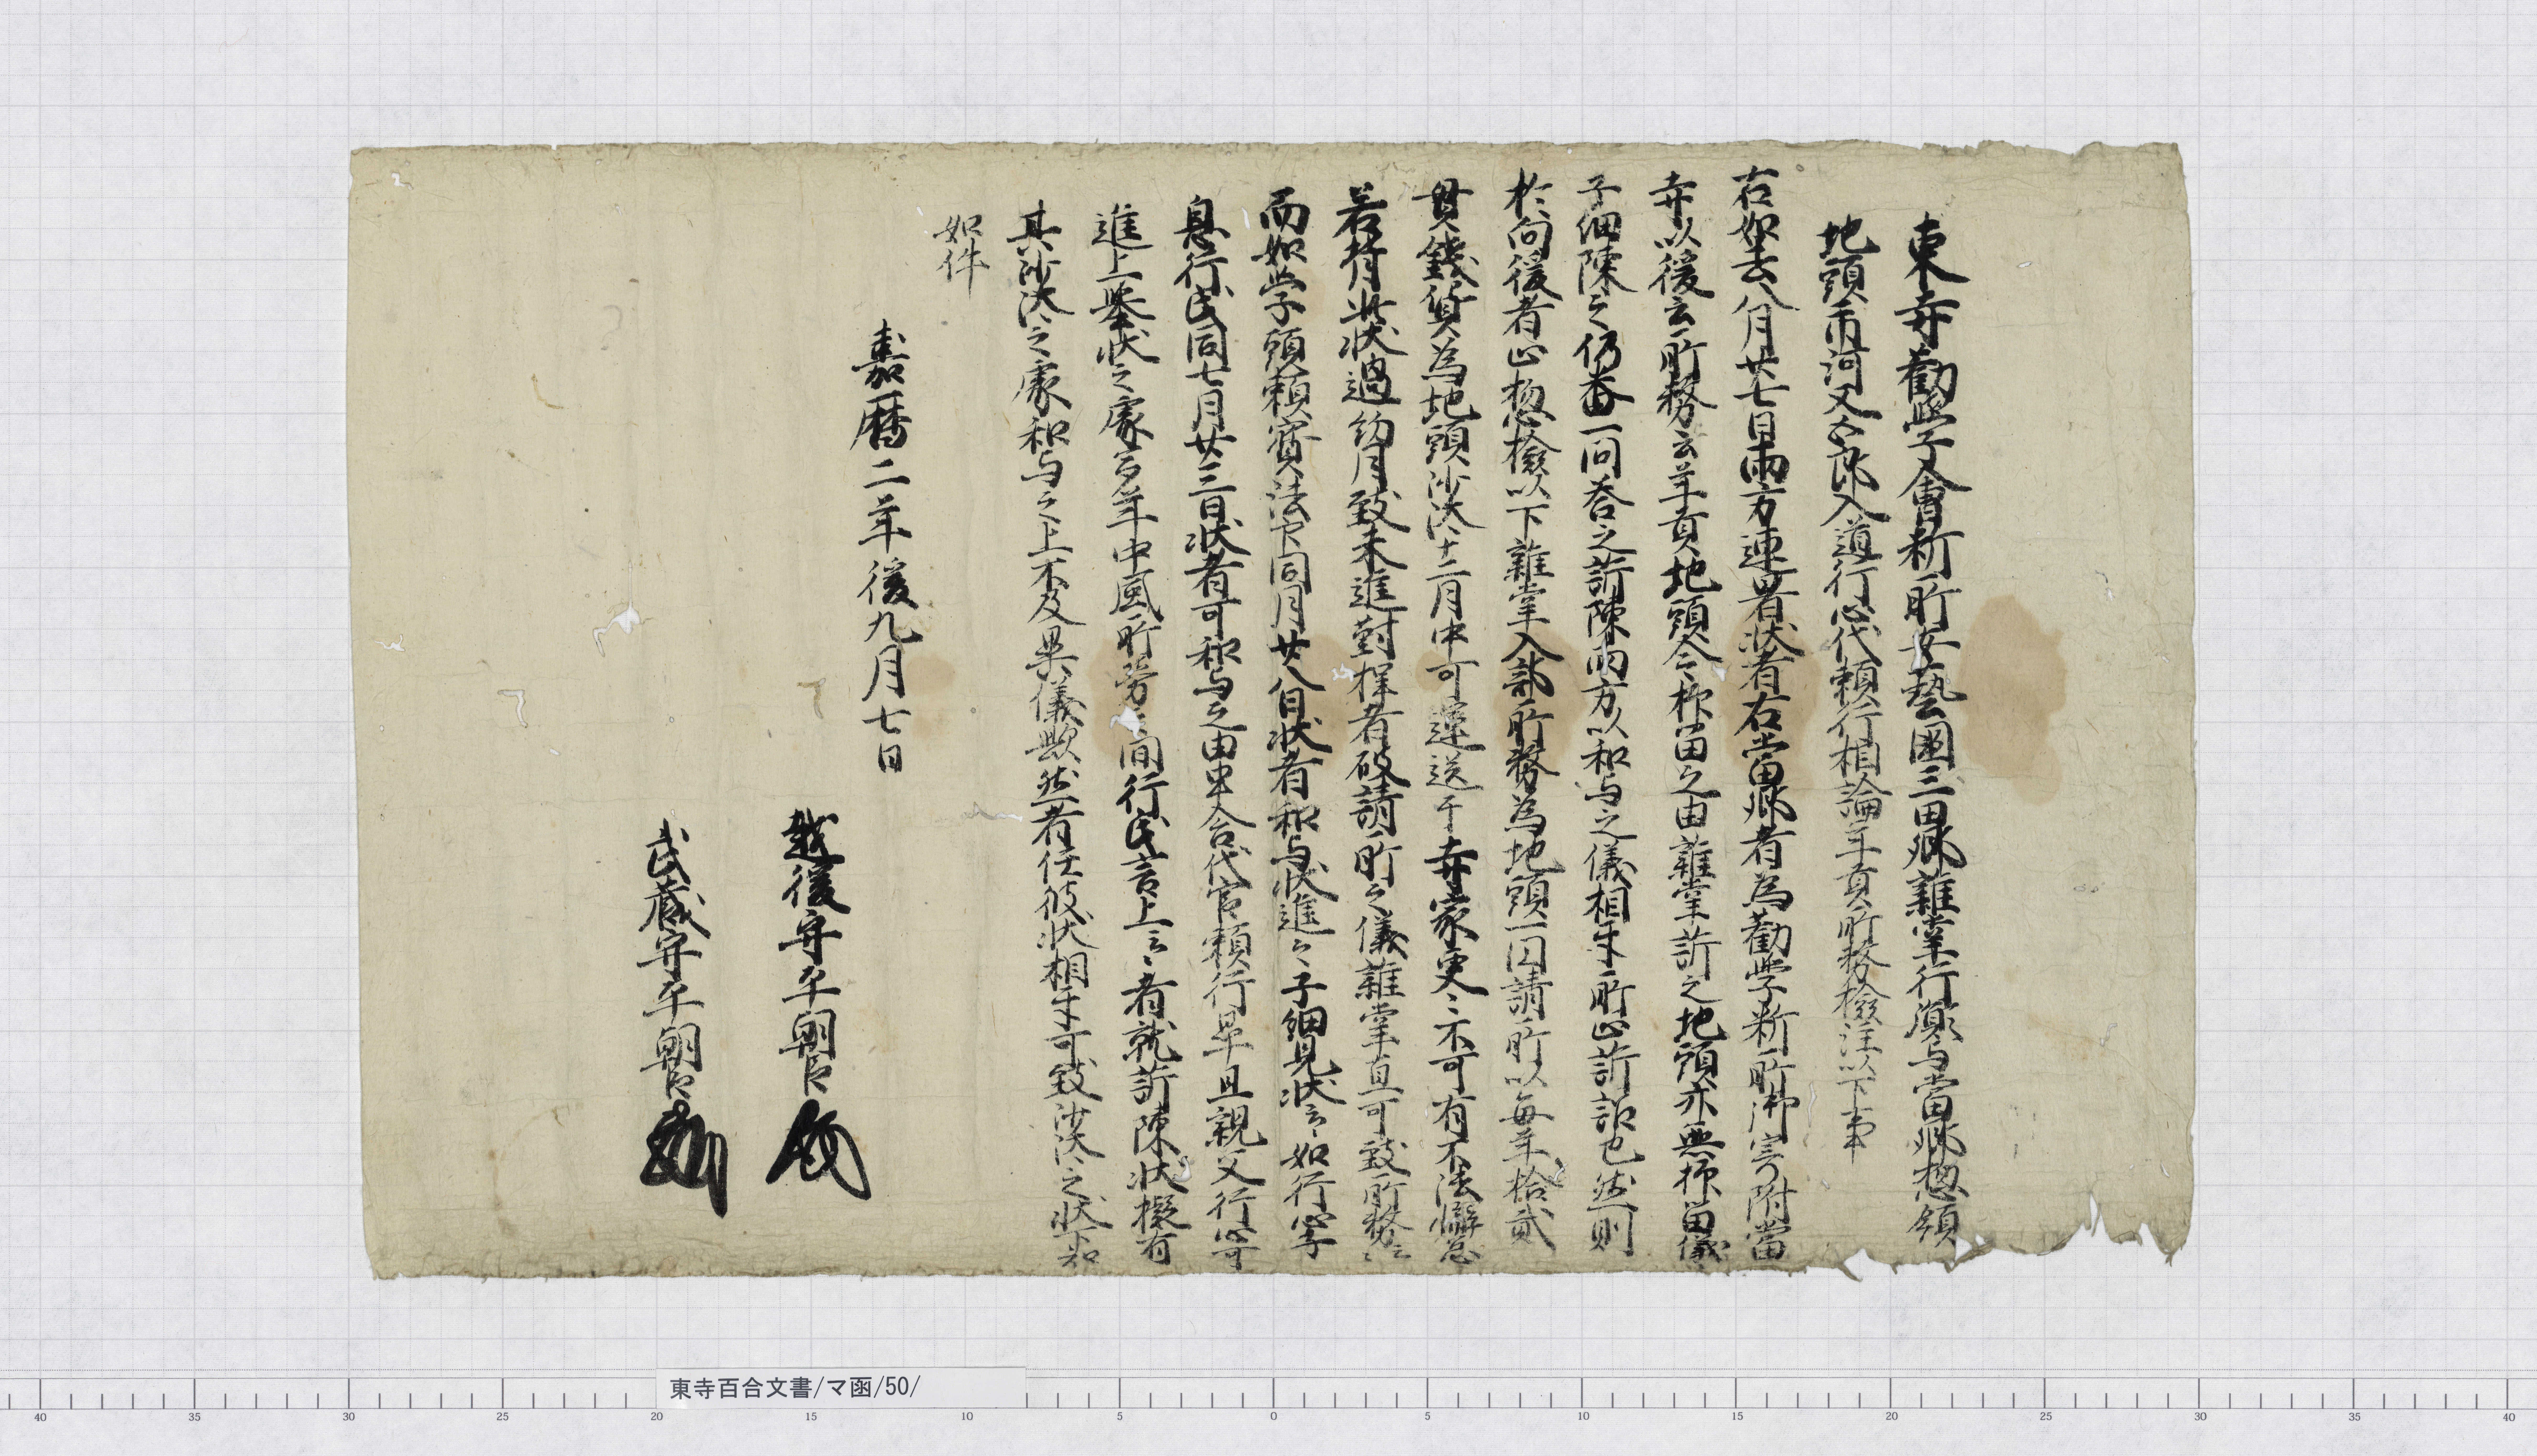 東寺勧学会料所安藝国三田郷雑掌行順与当郷惣領
地頭市河又五郎入道行心代頼行相論年貢所務検注以下事
右如去八月廿七日両方連署状者右当郷者為勧学料所御寄附当
寺以後云所務云年貢地頭令抑留之由雑掌訴之地頭亦無抑留儀
子細陳之仍番一問答之訴陳両方以和与之儀相互所止訴訟也然則
於向後者止惣検以下雑掌入部所務為地頭一円請所以毎年拾貳
貫銭貨為地頭沙汰十二月中可運送于寺家更々不可有不法懈怠
若背此状過約月致未進対捍者破請所之儀雑掌直可致所務云々
而如学頭頼宝法印同月廿八日状者和与状進之子細見状云々如行心子
息行氏同七月廿三日状者可和与之由申含代官頼行畢且親父行心可
進上挙状之処百年中風所労之間行氏言上云々者就訴陳状擬有
其沙汰之処和与之上不及異儀歟然者任彼状相互可致沙汰之状下知
如件
嘉暦二年後九月七日
越後守平朝臣
武蔵守平朝臣
東寺百合文書/マ函/50/
40 35 30 25 20 15 10 5 0 5 10 15 20 25 30 35 40